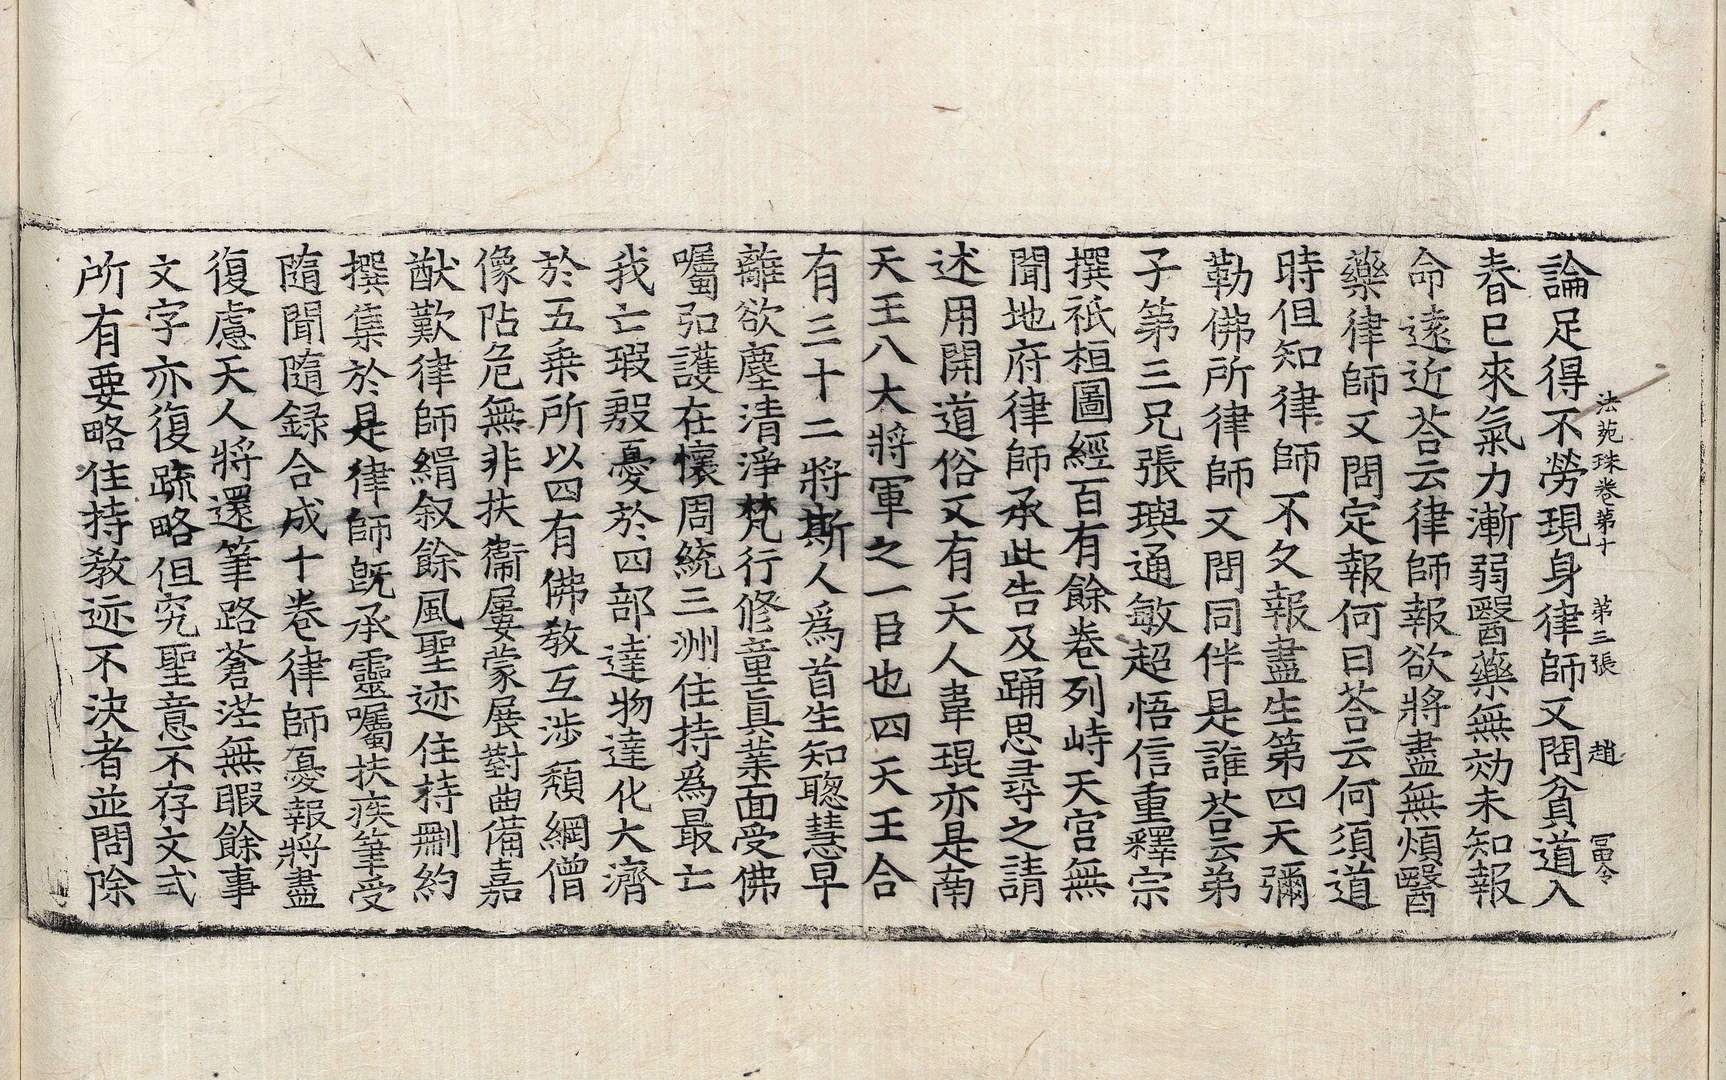 法苑珠卷第十　第三張　趙　冨令
論足得不勞現身律師又問貧道入
春已來氣力漸弱醫藥無効未知報
命遠近荅云律師報欲將盡無煩醫
藥律師又問定報何日荅云何須道
時但知律師不久報盡生第四天彌
勒佛所律師又問同伴是誰荅云弟
子第三兄張璵通敏超悟信重釋宗
撰祇桓圖經百有餘卷列峙天宮無
聞地府律師承此告及踊思尋之請
述用開道俗又有天人韋琨亦是南
天王八大將軍之一臣也四天王合
有三十二將斯人爲首生知聦慧早
離欲塵清淨梵行修童真業面受佛
囑弘護在懷周統三洲住持爲最亡
我亡瑕殷憂於四部達物達化大濟
於五乗所以四有佛教互涉頹綱僧
像阽危無非扶衞屢蒙展對曲備嘉
猷歎律師緝叙餘風聖迹住持刪約
撰集於是律師旣承靈囑扶疾筆受
隨聞隨録合成十卷律師憂報將盡
復慮天人將還筆路蒼茫無暇餘事
文字亦復疏略但究聖意不存文式
所有要略住持教迹不決者並問除